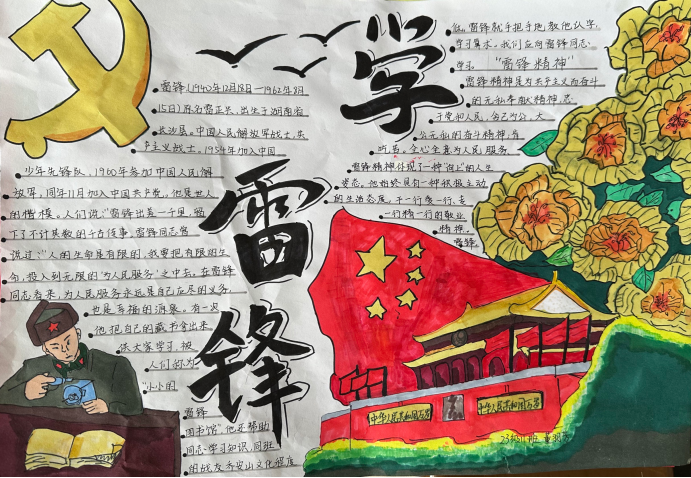 学
雷
锋
雷锋(1940年12月18日—1962年8月
15日)原名雷正兴,出生于湖南省
长沙县。中国人民解放军战士,共
产主义战士。1954年加入中国
少年先锋队,1960年参加中国人民解
放军,同年11月加入中国共产党。他是世人
的楷模。人们说:“雷锋出差一千里,留
下了不计其数的千古佳事。雷锋同志曾
说过:“人的生命是有限的,我要把有限的生
命,投入到无限的‘为人民服务’之中去。在雷锋
同志看来,为人民服务永远是自己应尽的义务,
也是幸福的源泉。有一次
他把自己的藏书拿出来
供大家学习,被
人们称为
“小小的
雷锋
图书馆”他还帮助
同志学习知识,同班
的战友乔安山文化程度
低,雷锋就手把手地教他认字,
学习算术。我们应向雷锋同志
学习。 “雷锋精神”
雷锋精神是为共产主义而奋斗
的无私奉献精神,忠
于党和人民,舍己为公,大
公无私的奋斗精神,有
吃苦,全心全意为人民服务
雷锋精神体现了一种 的人生
姿态,他始终具有一种积极主动
的生活态度。干一行爱一行、专
一行精一行的敬业
精神,
雷锋。
中华人民共和国万岁